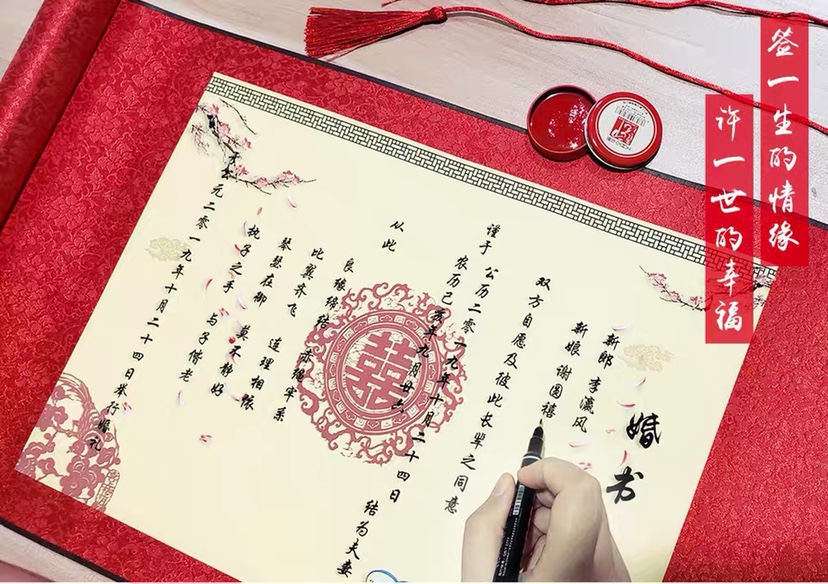 签一生的情缘
许一世的幸福
婚书
新郎 李瀛风
新娘 谢圆禧
双方自愿及彼此长辈之同意
谨于 公历二零一九年十月二十四日
农历己亥年九月廿六 结为夫妻
从此
良缘缔结 赤绳牢系
比翼齐飞 连理相依
琴瑟在御 莫不静好
执子之手 与子偕老
于公元二零一九年十月二十四日举行婚礼
囍